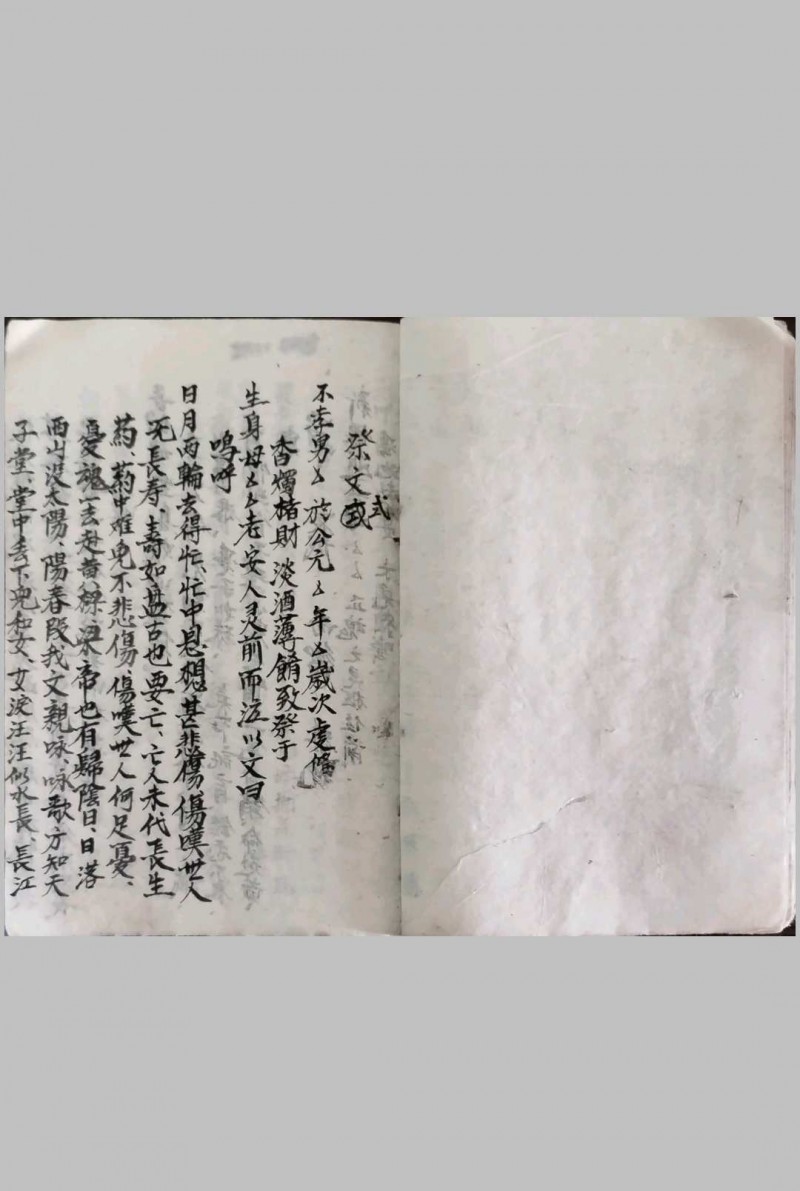 祭文式
不孝男厶於公元厶年厶歲次虔備
香燭楮財淡酒薄餚致祭于
生身母厶厶老安人灵前而泣以文曰
嗚呼
日月两輪去得忙、忙中思想甚悲傷、傷嘆世人
无長寿、壽如盘古也要亡、亡人未代長生
葯、葯中难免不悲傷、傷嘆世人何足憂、
憂魂一去赴黄粱、梁帝也有歸陰日、日落
西山没太陽、陽春段我文親咏、咏歌方知天
子堂、堂中丢下兒和女、女淚汪汪似水長、長江